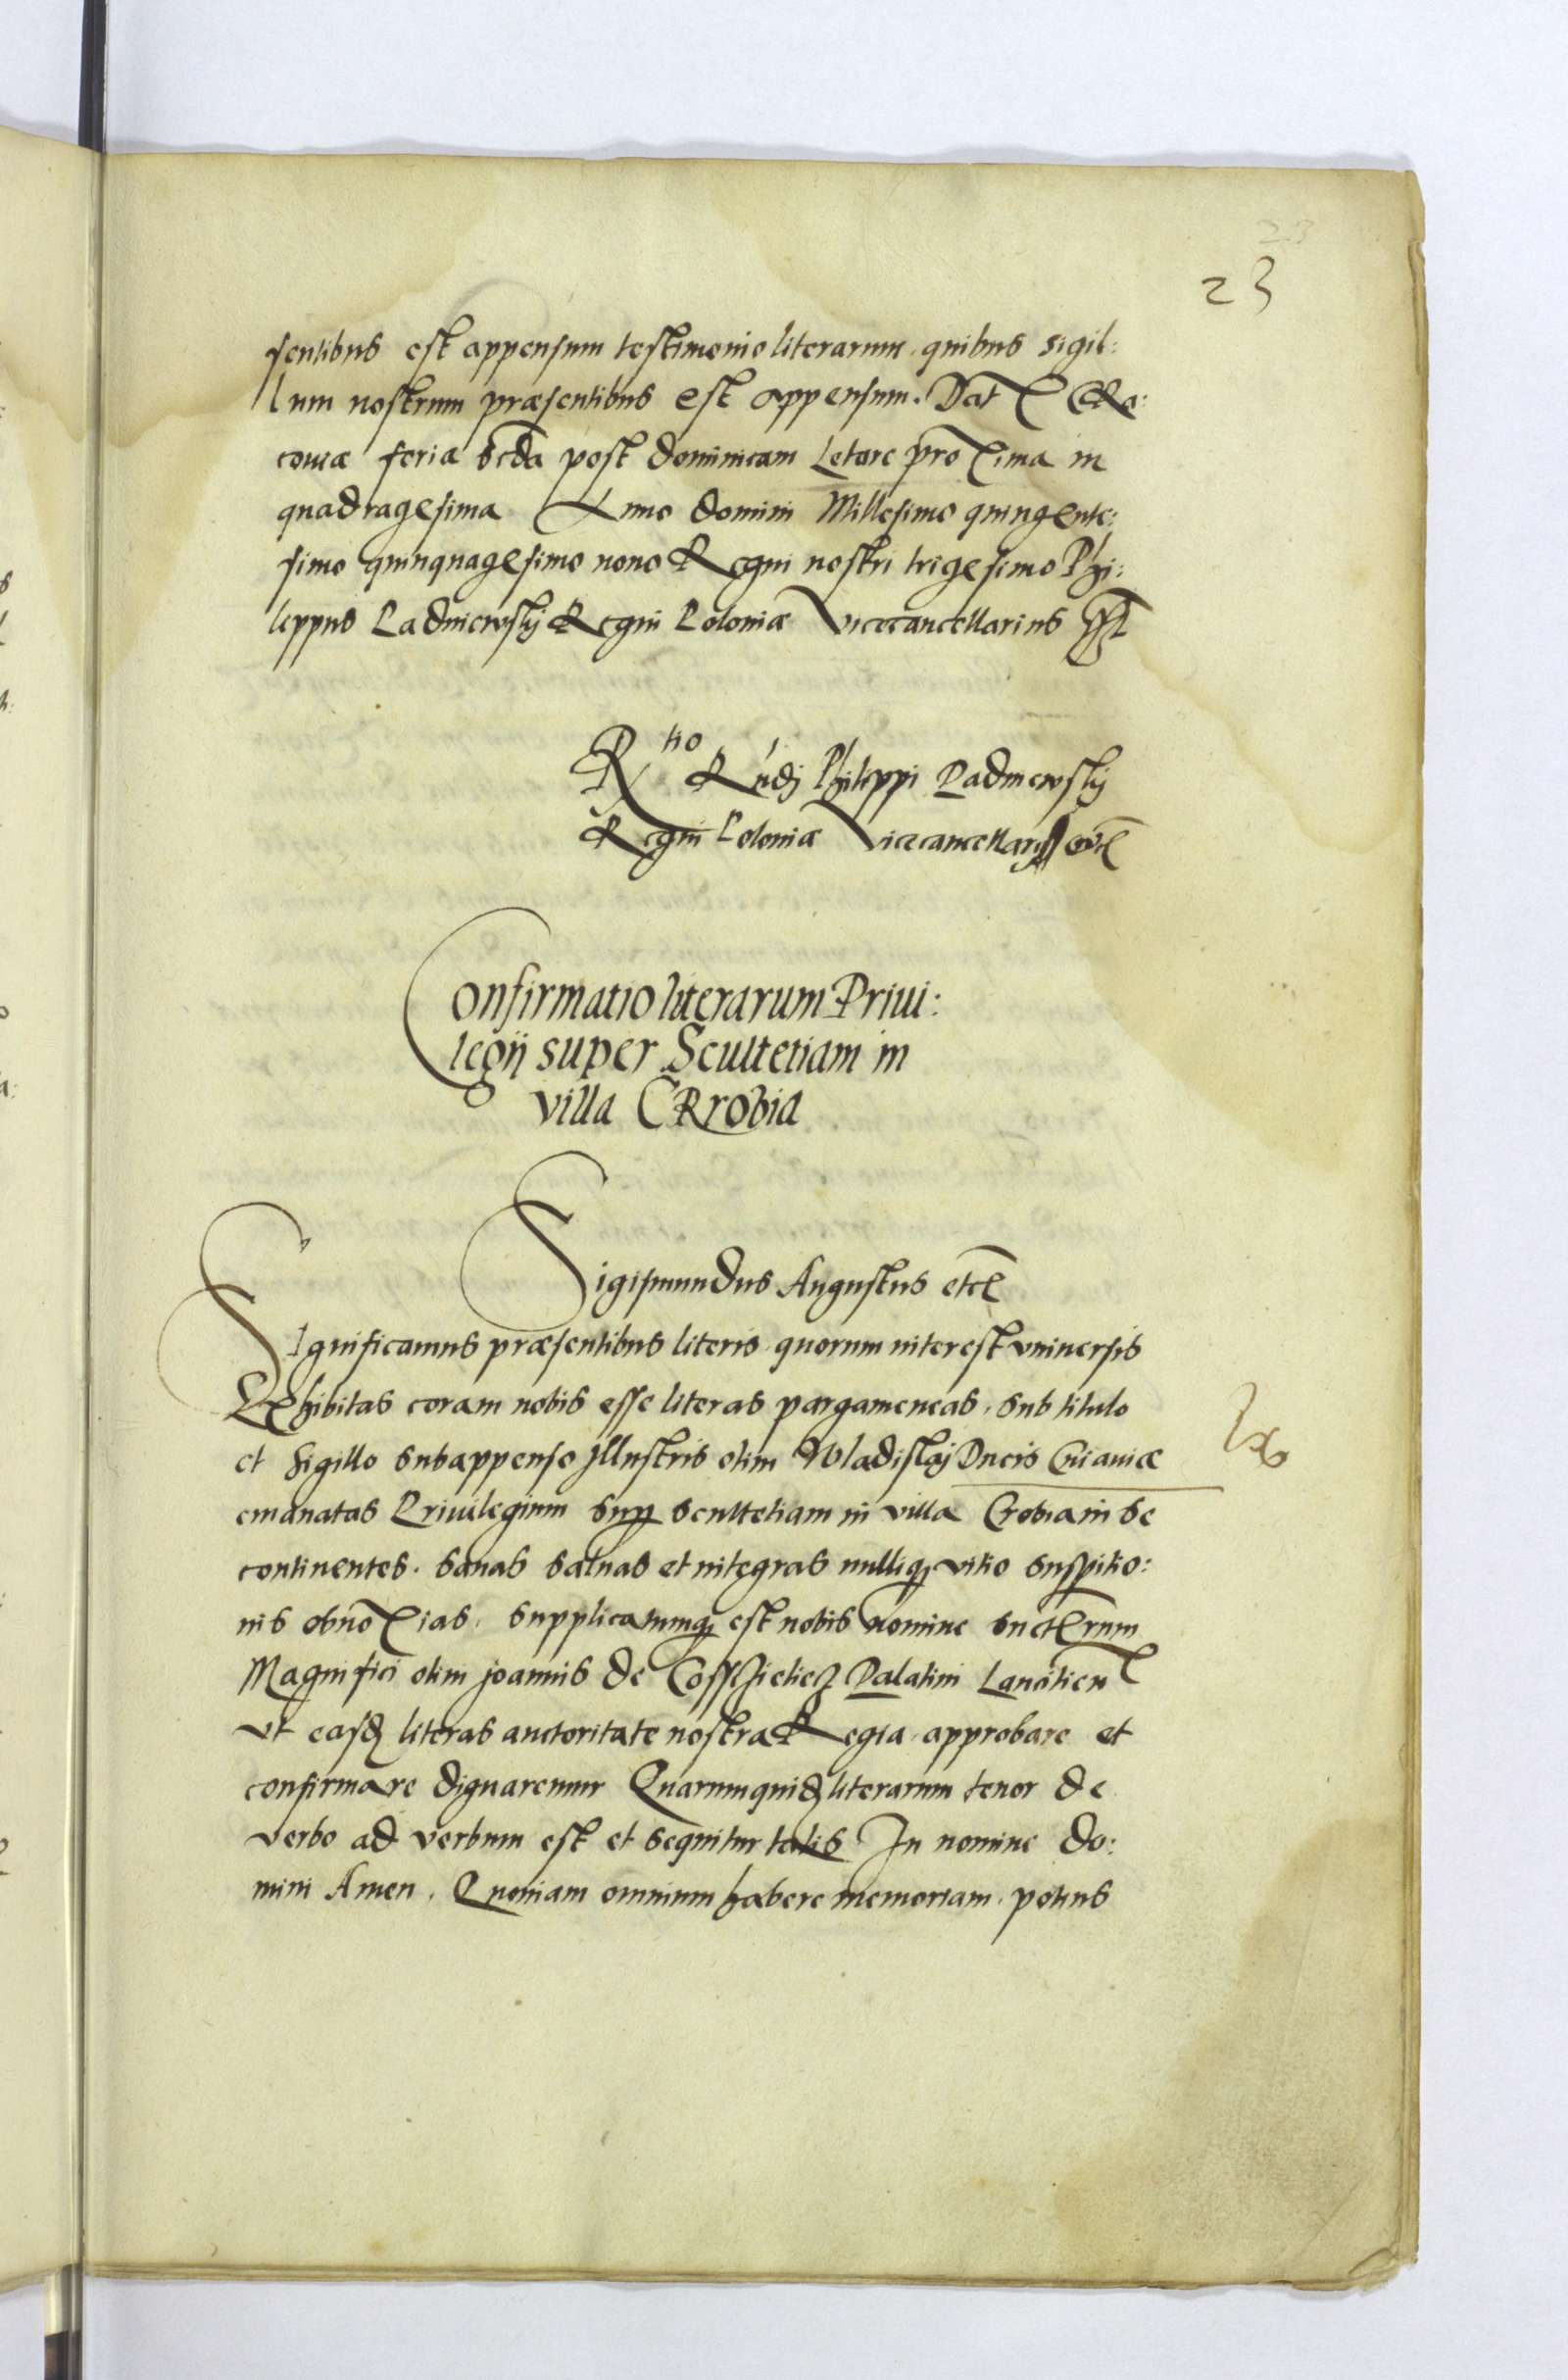 23
23
sentibus est appensum testimonio literarum. quibus sigil:
lum nostrum præsentibus est appensum. Dat CRa:
couiæ feria scda post dominicam Letare proxima in
quadragesima Anno domini Millesimo quingente:
simo quinquagesimo nono Regni nostri trigesimo Phi:
leppus Padniewsky Regni Poloniæ Vicecancellarius sst
Rtio Rndj Philippi Padniewsky
Regni Poloniæ Vicecancellarij
Confirmatio literarum Priui:
legij super Scultetiam in
villa CRrobia
Sigismundus Augustus etc
Significamus præsentibus literis. quorum interest vniuersis
Exhibitas coram nobis esse literas pargameneas. sub titulo
et sigillo subappenso Illustris olim Wladislaj Ducis Cuiauiæ
emanatas Priuilegium sup scultetiam in villa Crobia in se
continentes. sanas saluas et integras nulliq vitio suspitio:
nis obnoxias. supplicatumq est nobis nomine
Magnifici olim Joannis de Cosscieliecz Palatini Lancitien
vt easd literas auctoritate nostra Regia approbare et
confirmare dignaremur Quarumquid literarum tenor de
verbo ad verbum est et sequitur talis In nomine do:
mini Amen. Quoniam omnium habere memoriam. potius